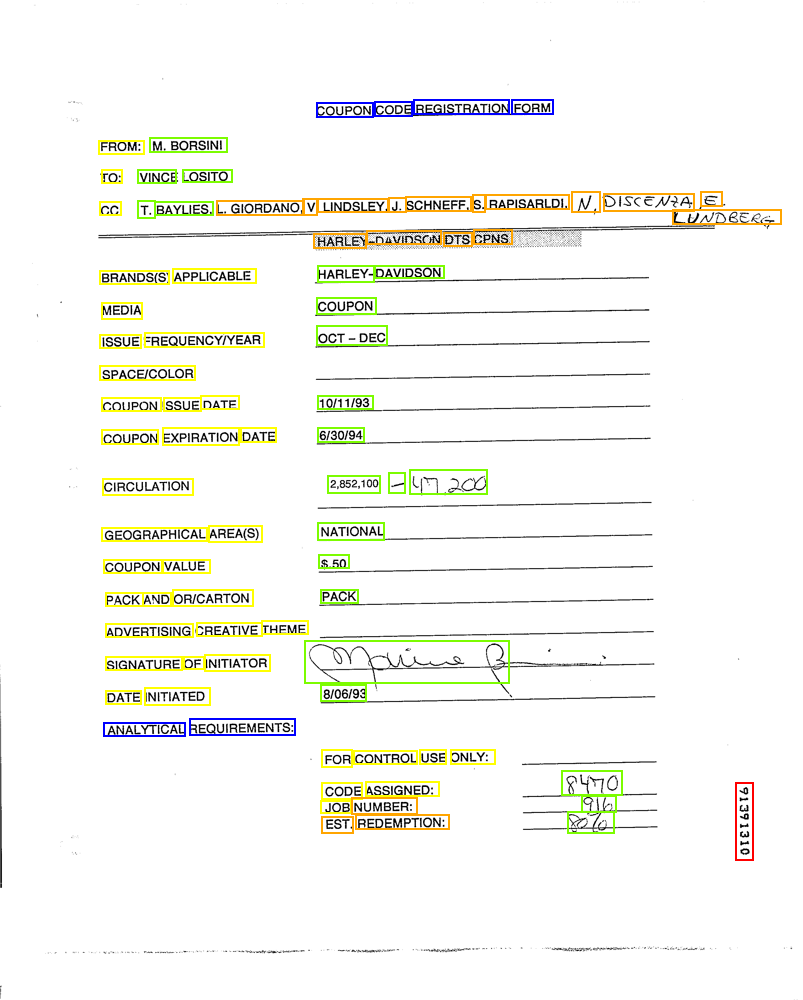 COUPON CODE REGISTRATION FORM
FROM: M. BORSINI
TO: VINCE LOSITO
CC T. BAYLIES, L. GIORDANO, V LINDSLEY, J. SCHNEFF, S. RAPISARLDI, N, DISCENZA, E.
LUNDBERG
HARLEY-DAVIDSON DTS CPNS
BRANDS(S) APPLICABLE HARLEY-DAVIDSON
MEDIA COUPON
ISSUE FREQUENCY/YEAR OCT - DEC
SPACE/COLOR
COUPON ISSUE DATE 10/11/93
COUPON EXPIRATION DATE 6/30/94
CIRCULATION 2,852,100 - 47,200
GEOGRAPHICAL AREA(S) NATIONAL
COUPON VALUE $.50
PACK AND OR/CARTON PACK
ADVERTISING CREATIVE THEME
SIGNATURE OF INITIATOR
DATE INITIATED 8/06/93
ANALYTICAL REQUIREMENTS:
FOR CONTROL USE ONLY:
CODE ASSIGNED: 8470
JOB NUMBER: 916
EST. REDEMPTION: 80%
91391310